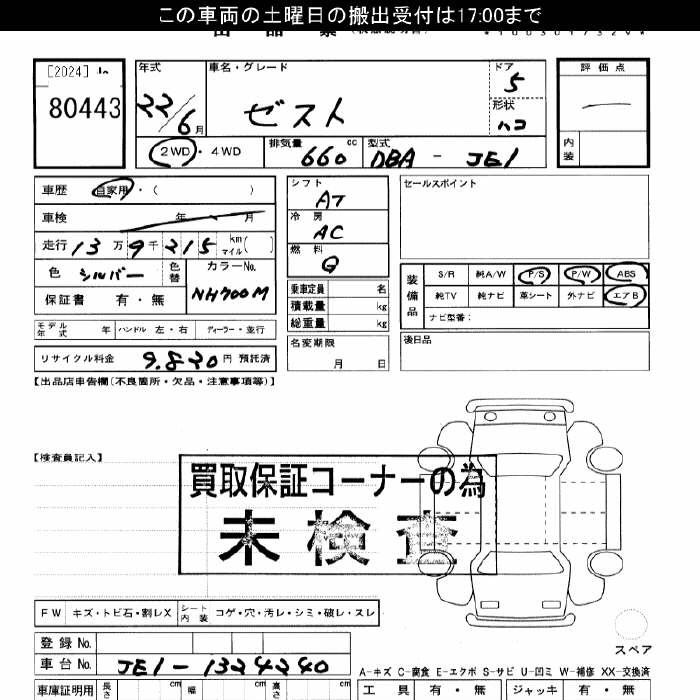 この車両の土曜日の搬出受付は17:00まで
[2024]
80443
年式
22/6月
車名・グレード
ゼスト
ドア
5
形状
ハコ
評価点
内装
2WD・4WD
排気量
660 cc
型式
DBA - JE1
車歴 自家用・( )
車検 年 月
走行 13万9千215 km マイル( )
色 シルバー 色替
カラーNo.
NH700M
保証書 有・無
シフト
AT
冷房
AC
燃料
G
乗車定員 名
積載量 kg
総重量 kg
セールスポイント
装備品
S/R 純A/W P/S P/W ABS
純TV 純ナビ 革シート 外ナビ エアB
ナビ型番:
モデル年式 年 ハンドル 左・右 ディーラー・並行
名変期限
月 日
後日品
リサイクル料金 9,820円 預託済
【出品店申告欄(不良箇所・欠品・注意事項等)】
【検査員記入】
買取保証コーナーの為
未検査
FW キズ・トビ石・割レX シート内装 コゲ・穴・汚レ・シミ・破レ・スレ
スペア
登録No.
車台No. JE1-1324240
A-キズ C-腐食 E-エクボ S-サビ U-凹ミ W-補修 XX-交換済
車庫証明用 長さ cm 幅 cm 高さ cm
工具 有・無 ジャッキ 有・無